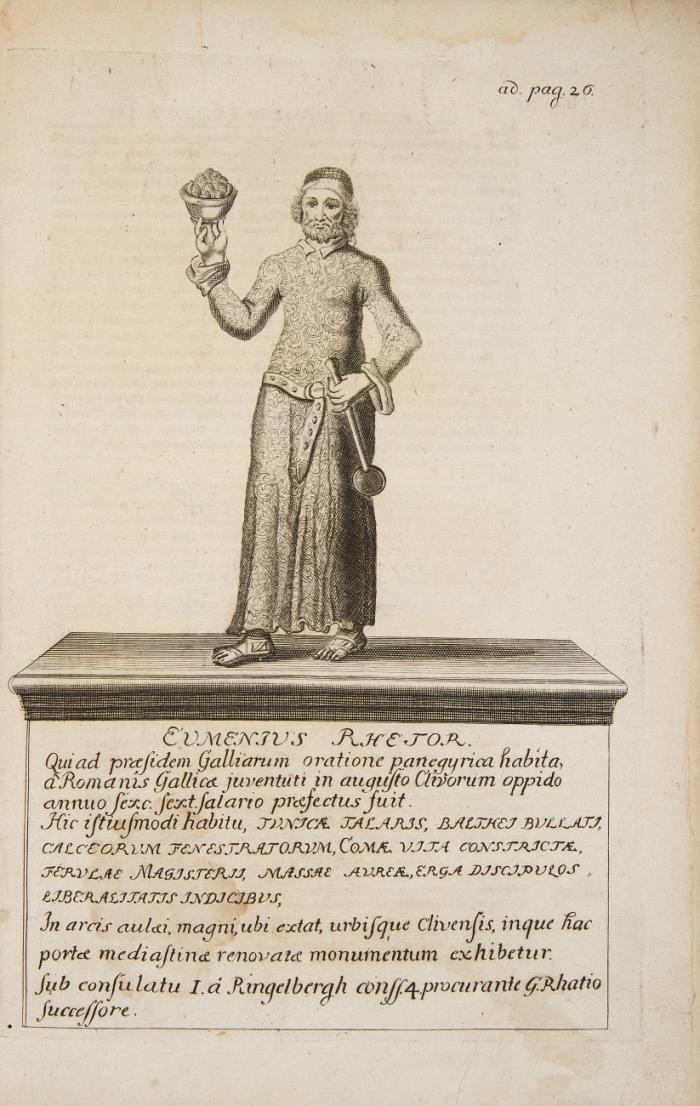 ad. pag. 26.
EVMENIVS RHETOR.
Qui ad præsidem Galliarum oratione panegyrica habita,
a Romanis Gallicæ juventuti in augusto Clivorum oppido
annuo sexc. sext. salario præfectus fuit.
Hic istiusmodi habitu, TVNICÆ TALARIS, BALTHEI BVLLATI,
CALCEORVM FENESTRATORVM, COMÆ VITA CONSTRICTÆ,
FERVLAE MAGISTERII, MASSAE AVREÆ, ERGA DISCIPVLOS
LIBERALITATIS INDICIBVS,
In arcis aulæi, magni, ubi extat, urbisque Clivensis, inque hac
portæ mediastinæ renovatæ monumentum exhibetur.
Sub consulatu I. á Ringelbergh conss. 4. procurante G. Rhatio
successore.